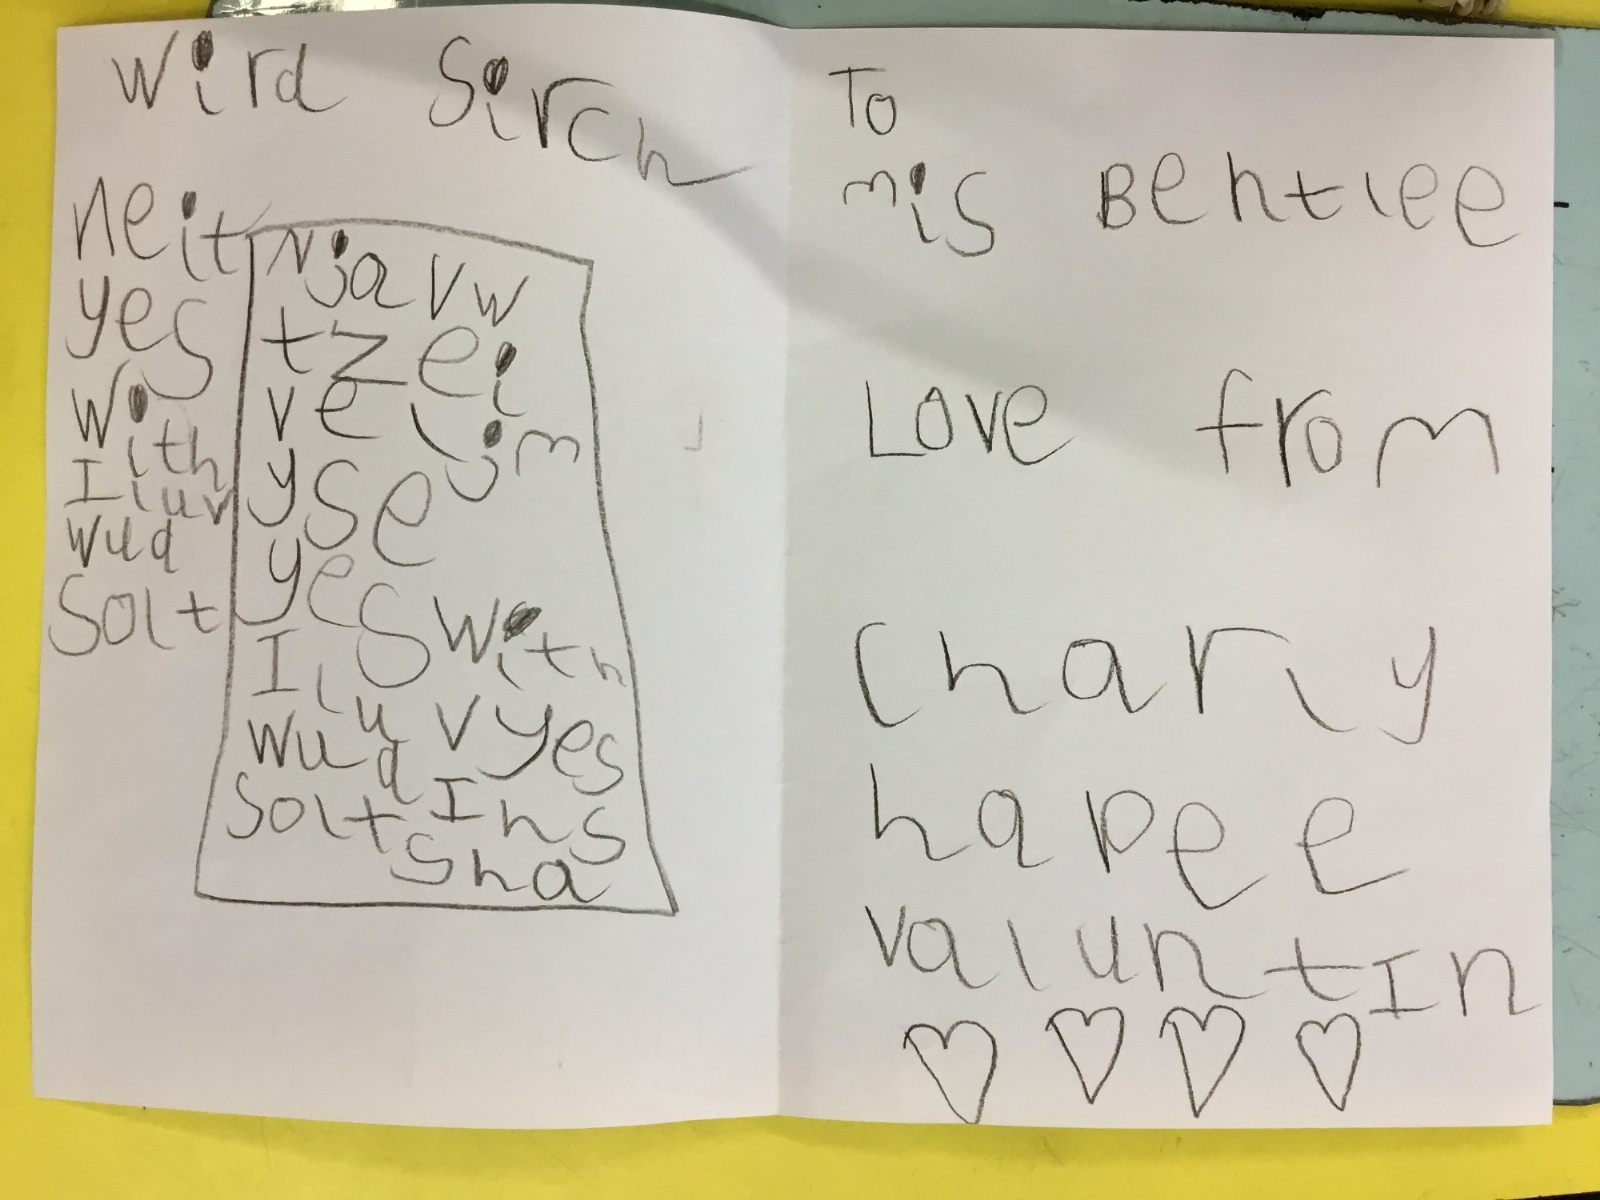 wird sirch
neit
yes
with
I luv
wud
solt
N j a v w
t z e i
v e l j m
y s e
yes with
I luv yes
wud I h s
solt s h a
To
mis Bentlee
Love from
Charly
hapee
valuntIn